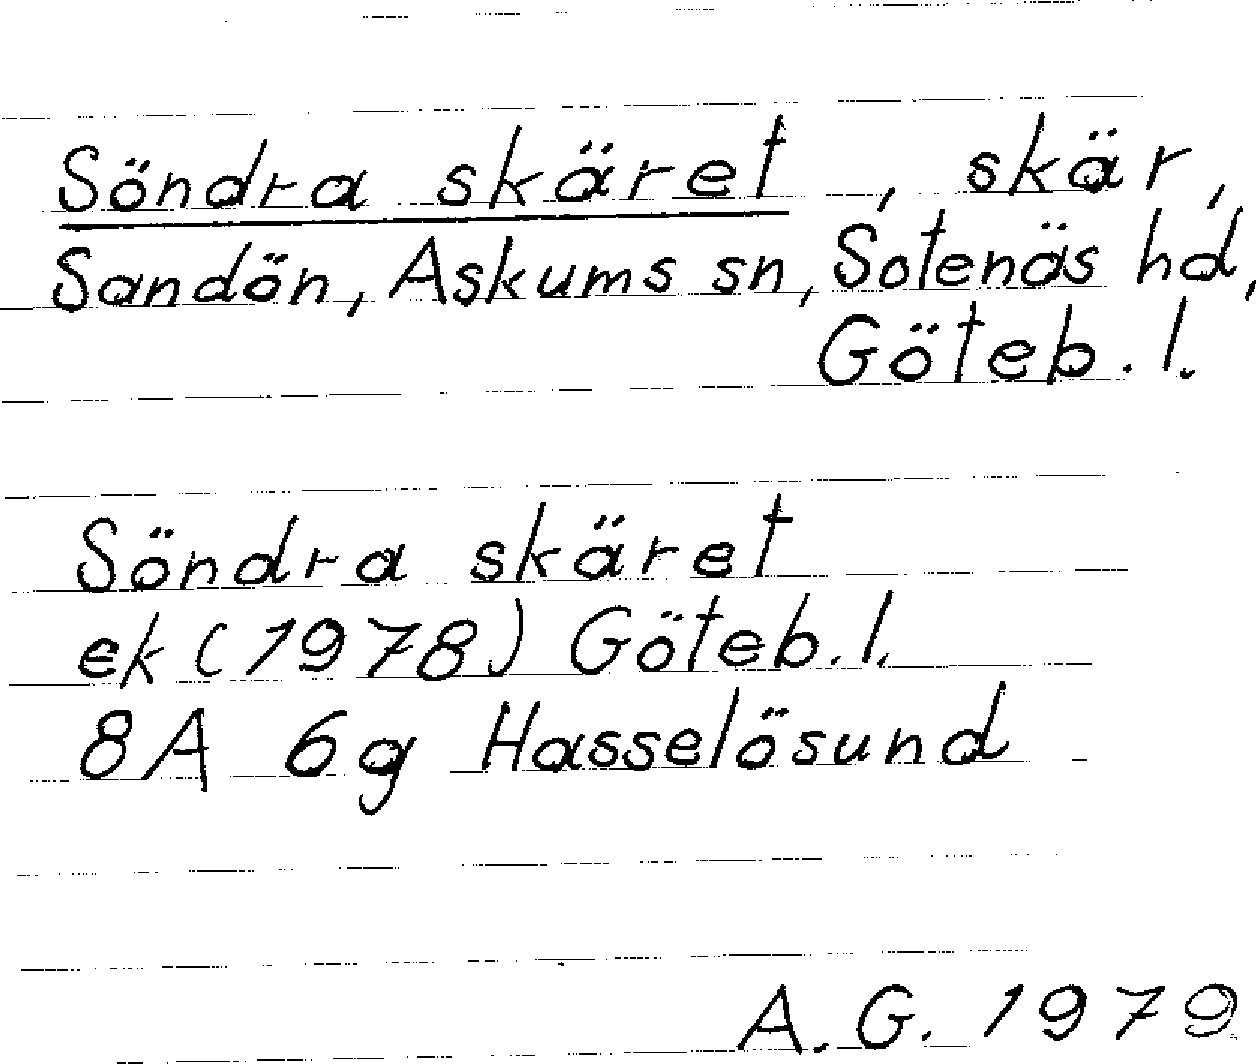 Söndra skäret, skär,
Sandön, Askums sn, Sotenäs hd,
Göteb. l.
Söndra skäret
ek (1978) Göteb. l.
8A 6g Hasselösund
A. G. 1979